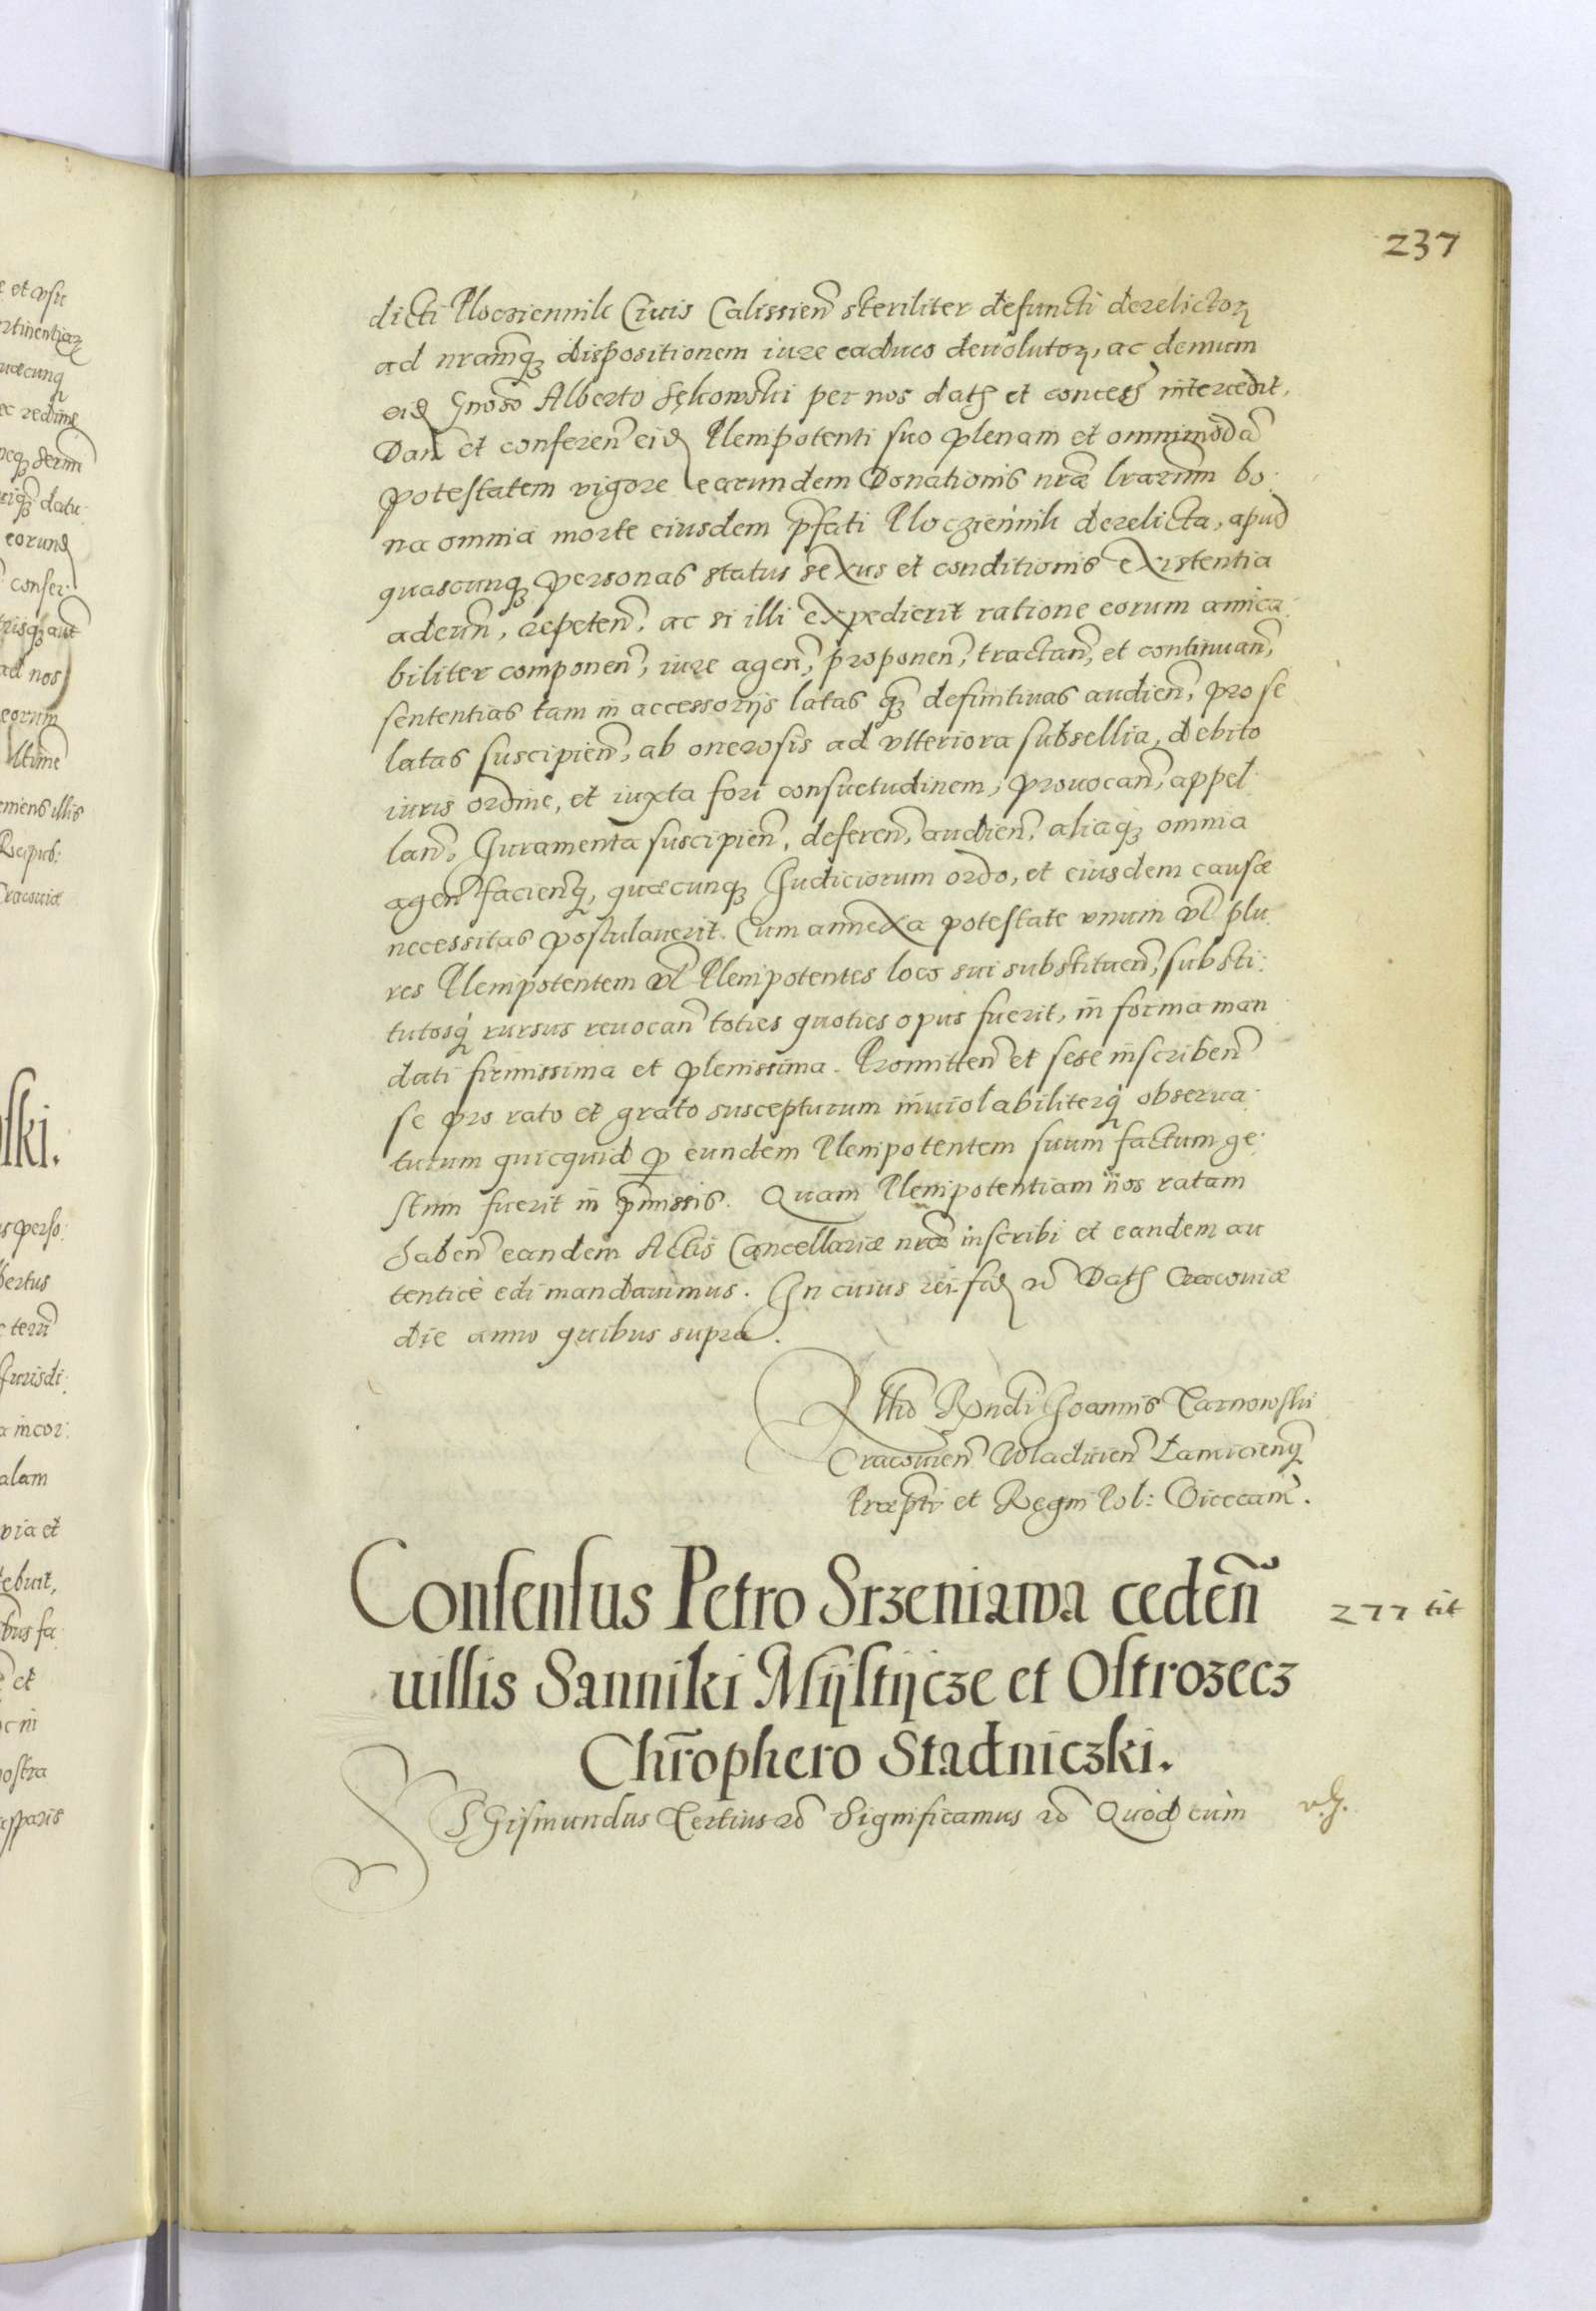 237
dicti Płocziennik Ciuis Calissień steriliter defuncti derelictoꝝ
ad nramqȝ dispositionem iure caduco deuolutoꝝ, ac demum
eid Gnoso Alberto Sękowski per nos dat et concess intercedit.
Dań et confereń eid Plenipotenti suo plenam et omnimodā
potestatem vigore earundem Donationis nrae lrarum bo:
na omnia morte eiusdem pfati Płocziennik derelicta, apud
quascunqȝ personas status sexus et conditionis existentia
adeuń, repeteń, ac si illi expedierit ratione eorum amica:
biliter componeń, iure ageń, proponeń, tractań, et continuań,
sententias tam in accessorijs latas qȝ definitiuas audień, pro se
latas suscipień, ab onerosis ad vlteriora subsellia, debito
iuris ordine, et iuxta fori consuetudinem, prouocań, appel:
lań, Iuramenta suscipień, defereń, audień, aliaqȝ omnia
ageń facienqȝ, quaecunqȝ Iudiciorum ordo, et eiusdem causae
necessitas postulauerit. Cum annexa potestate vnum vl plu:
res Plenipotentem vl Plenipotentes loco sui substitueń, substi:
tutosqȝ rursus reuocań toties quoties opus fuerit, in forma man
dati firmissima et plenissima. Promitteń et sese inscribeń
se pro rato et grato suscepturum inuiolabiliterqȝ obserua:
turum quicquid p eundem Plenipotentem suum factum ge:
stum fuerit in pmissis. Quam Plenipotentiam nos ratam
habeń eandem Actis Cancellariae nrae inscribi et eandem au
tenticè edi mandauimus. In cuius rei fid etc Dat Cracouiae
die anno quibus supra.
Rltio Rndi Ioannis Tarnowski
Cracouień Wladiuień Lanicienqȝ
Praepti et Regni Pol: Vicecań.
Consensus Petro Srzeniawa cedeń
277 tit
uillis Sanniki Mÿstÿcze et Ostrozecz
Chrophero Stadniczki.
SIgismundus Tertius etc Significamus etc Quod cum